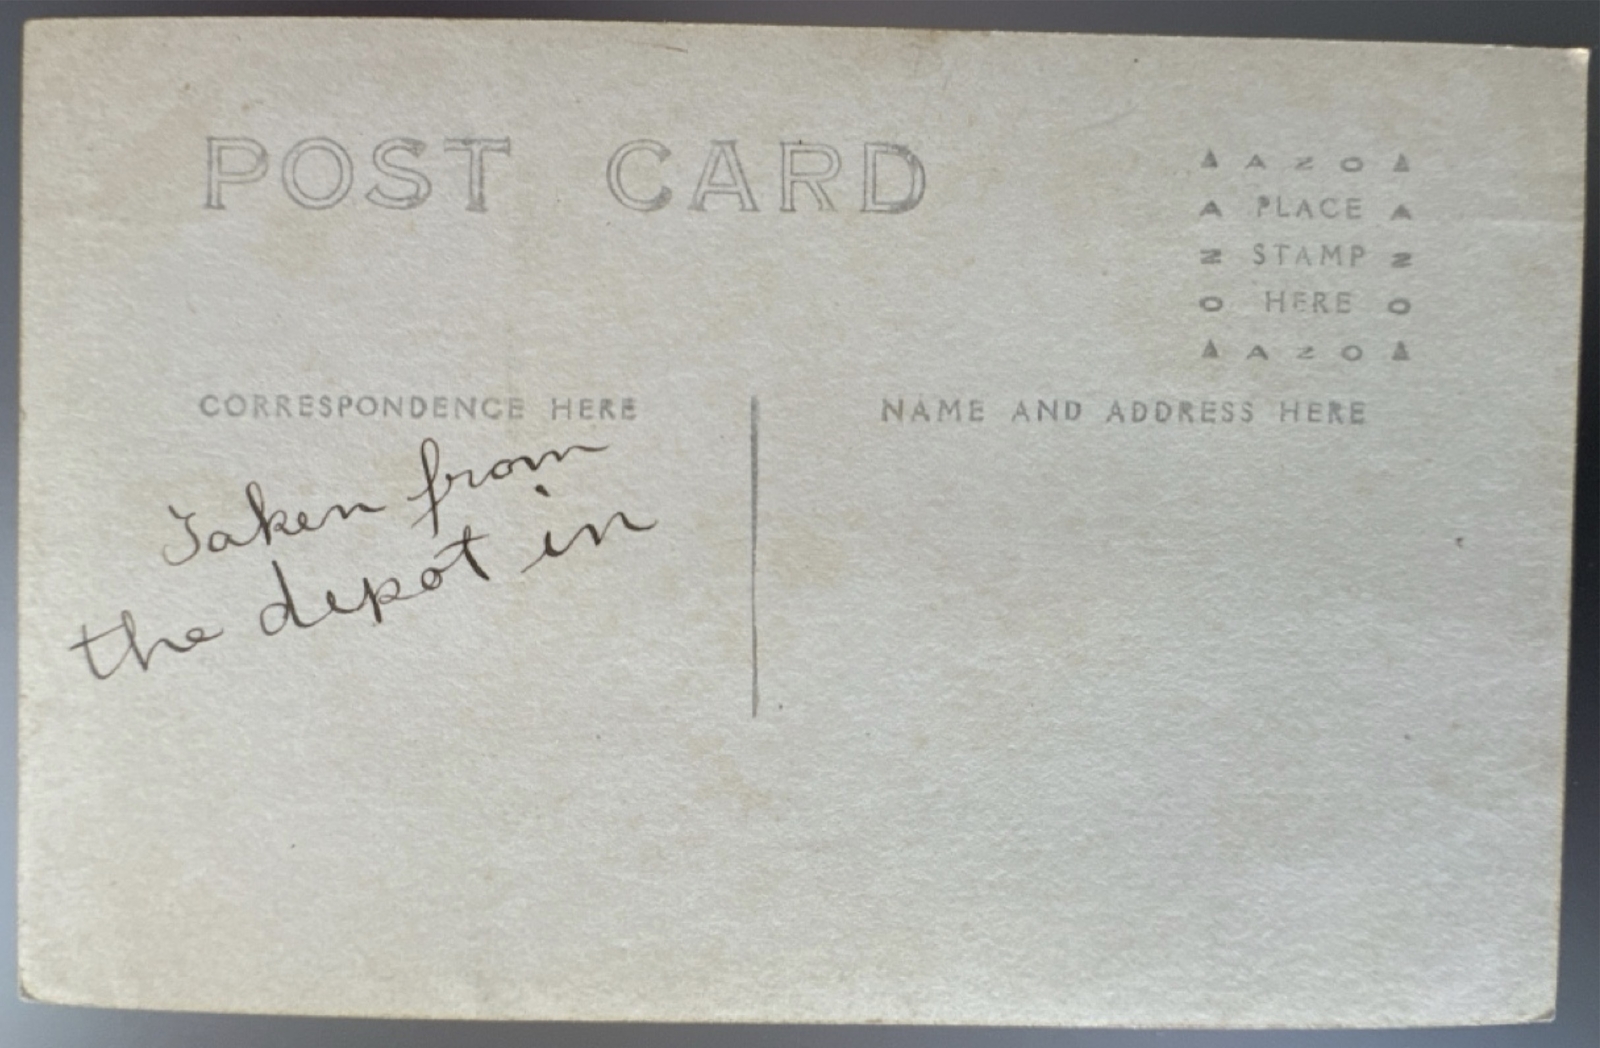 POST CARD
▲ A Z O ▲
A PLACE A
Z STAMP Z
O HERE O
▲ A Z O ▲
CORRESPONDENCE HERE
NAME AND ADDRESS HERE
Taken from
the depot in